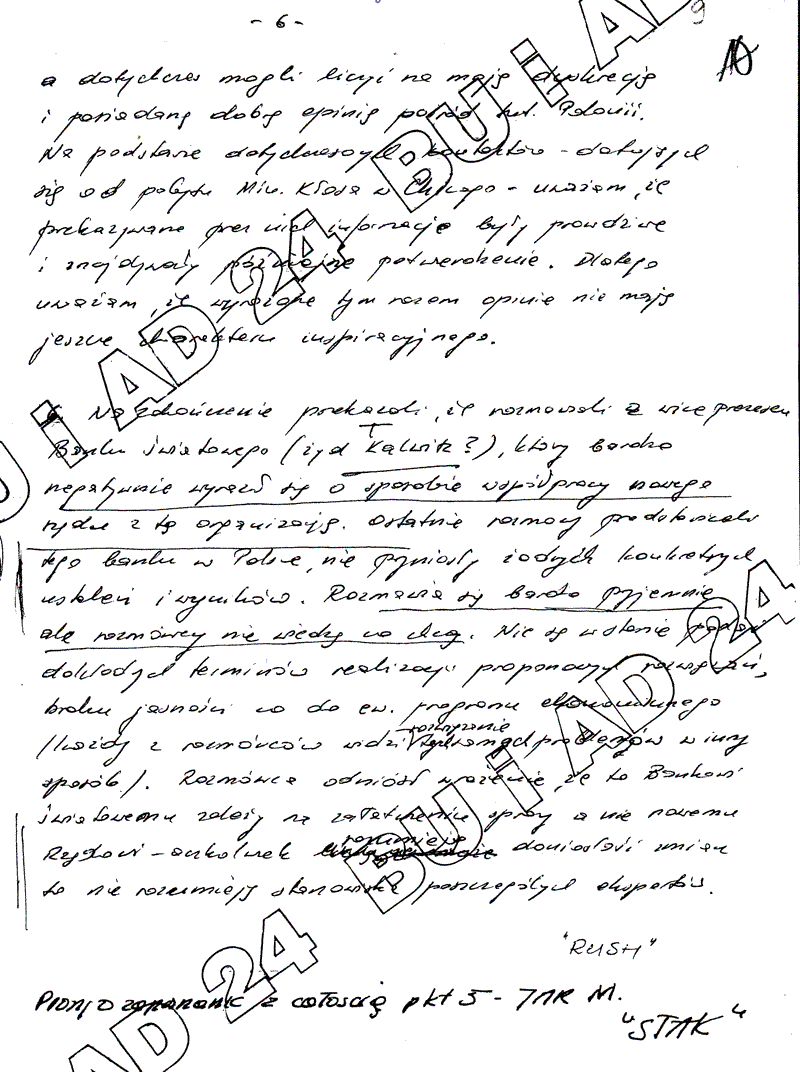 - 6 -
9
a dotychczas mogli liczyć na moją dyskrecję
i posiadaną dobrą opinię pośród tut. Polonii.
Na podstawie dotychczasowych kontaktów - datujących
się od pobytu Min. Kłosa w Chicago - uważam, że
przekazywane przez nich informacje były prawdziwe
i znajdywały późniejsze potwierdzenie. Dlatego
uważam, że wyrażone tym razem opinie nie mają
jeszcze charakteru inspiracyjnego.
Na zakończenie przekazali, że rozmawiali z wice prezesem
Banku Światowego (żyd Kalwitz?), który bardzo
negatywnie wyraził się o sposobie współpracy nowego
rządu z tą organizacją. Ostatnie rozmowy przedstawicieli
tego banku w Polsce, nie przyniosły żadnych konkretnych
ustaleń i wyników. Rozmawia się bardzo przyjemnie
ale rozmówcy nie wiedzą co chcą. Nie są w stanie podać
dokładnych terminów realizacji proponowanych rozwiązań,
braku jasności co do ew. programu ekonomicznego
/każdy z rozmówców widzi rozwiązanie problemów w inny
sposób/. Rozmówca odniósł wrażenie, że to Bankowi
Światowemu zależy na załatwieniu sprawy a nie nowemu
Rządowi - aczkolwiek rozumieją doniosłość zmian
to nie rozumieją stanowiska poszczególnych ekspertów.
"RUSH"
Proszę o zapoznanie z całością pkt 5 - 7 NR M.
"STAK"
BU i AD 24 BU i AD
BU i AD 24 BU i AD 24
AD 24 BU i AD 24